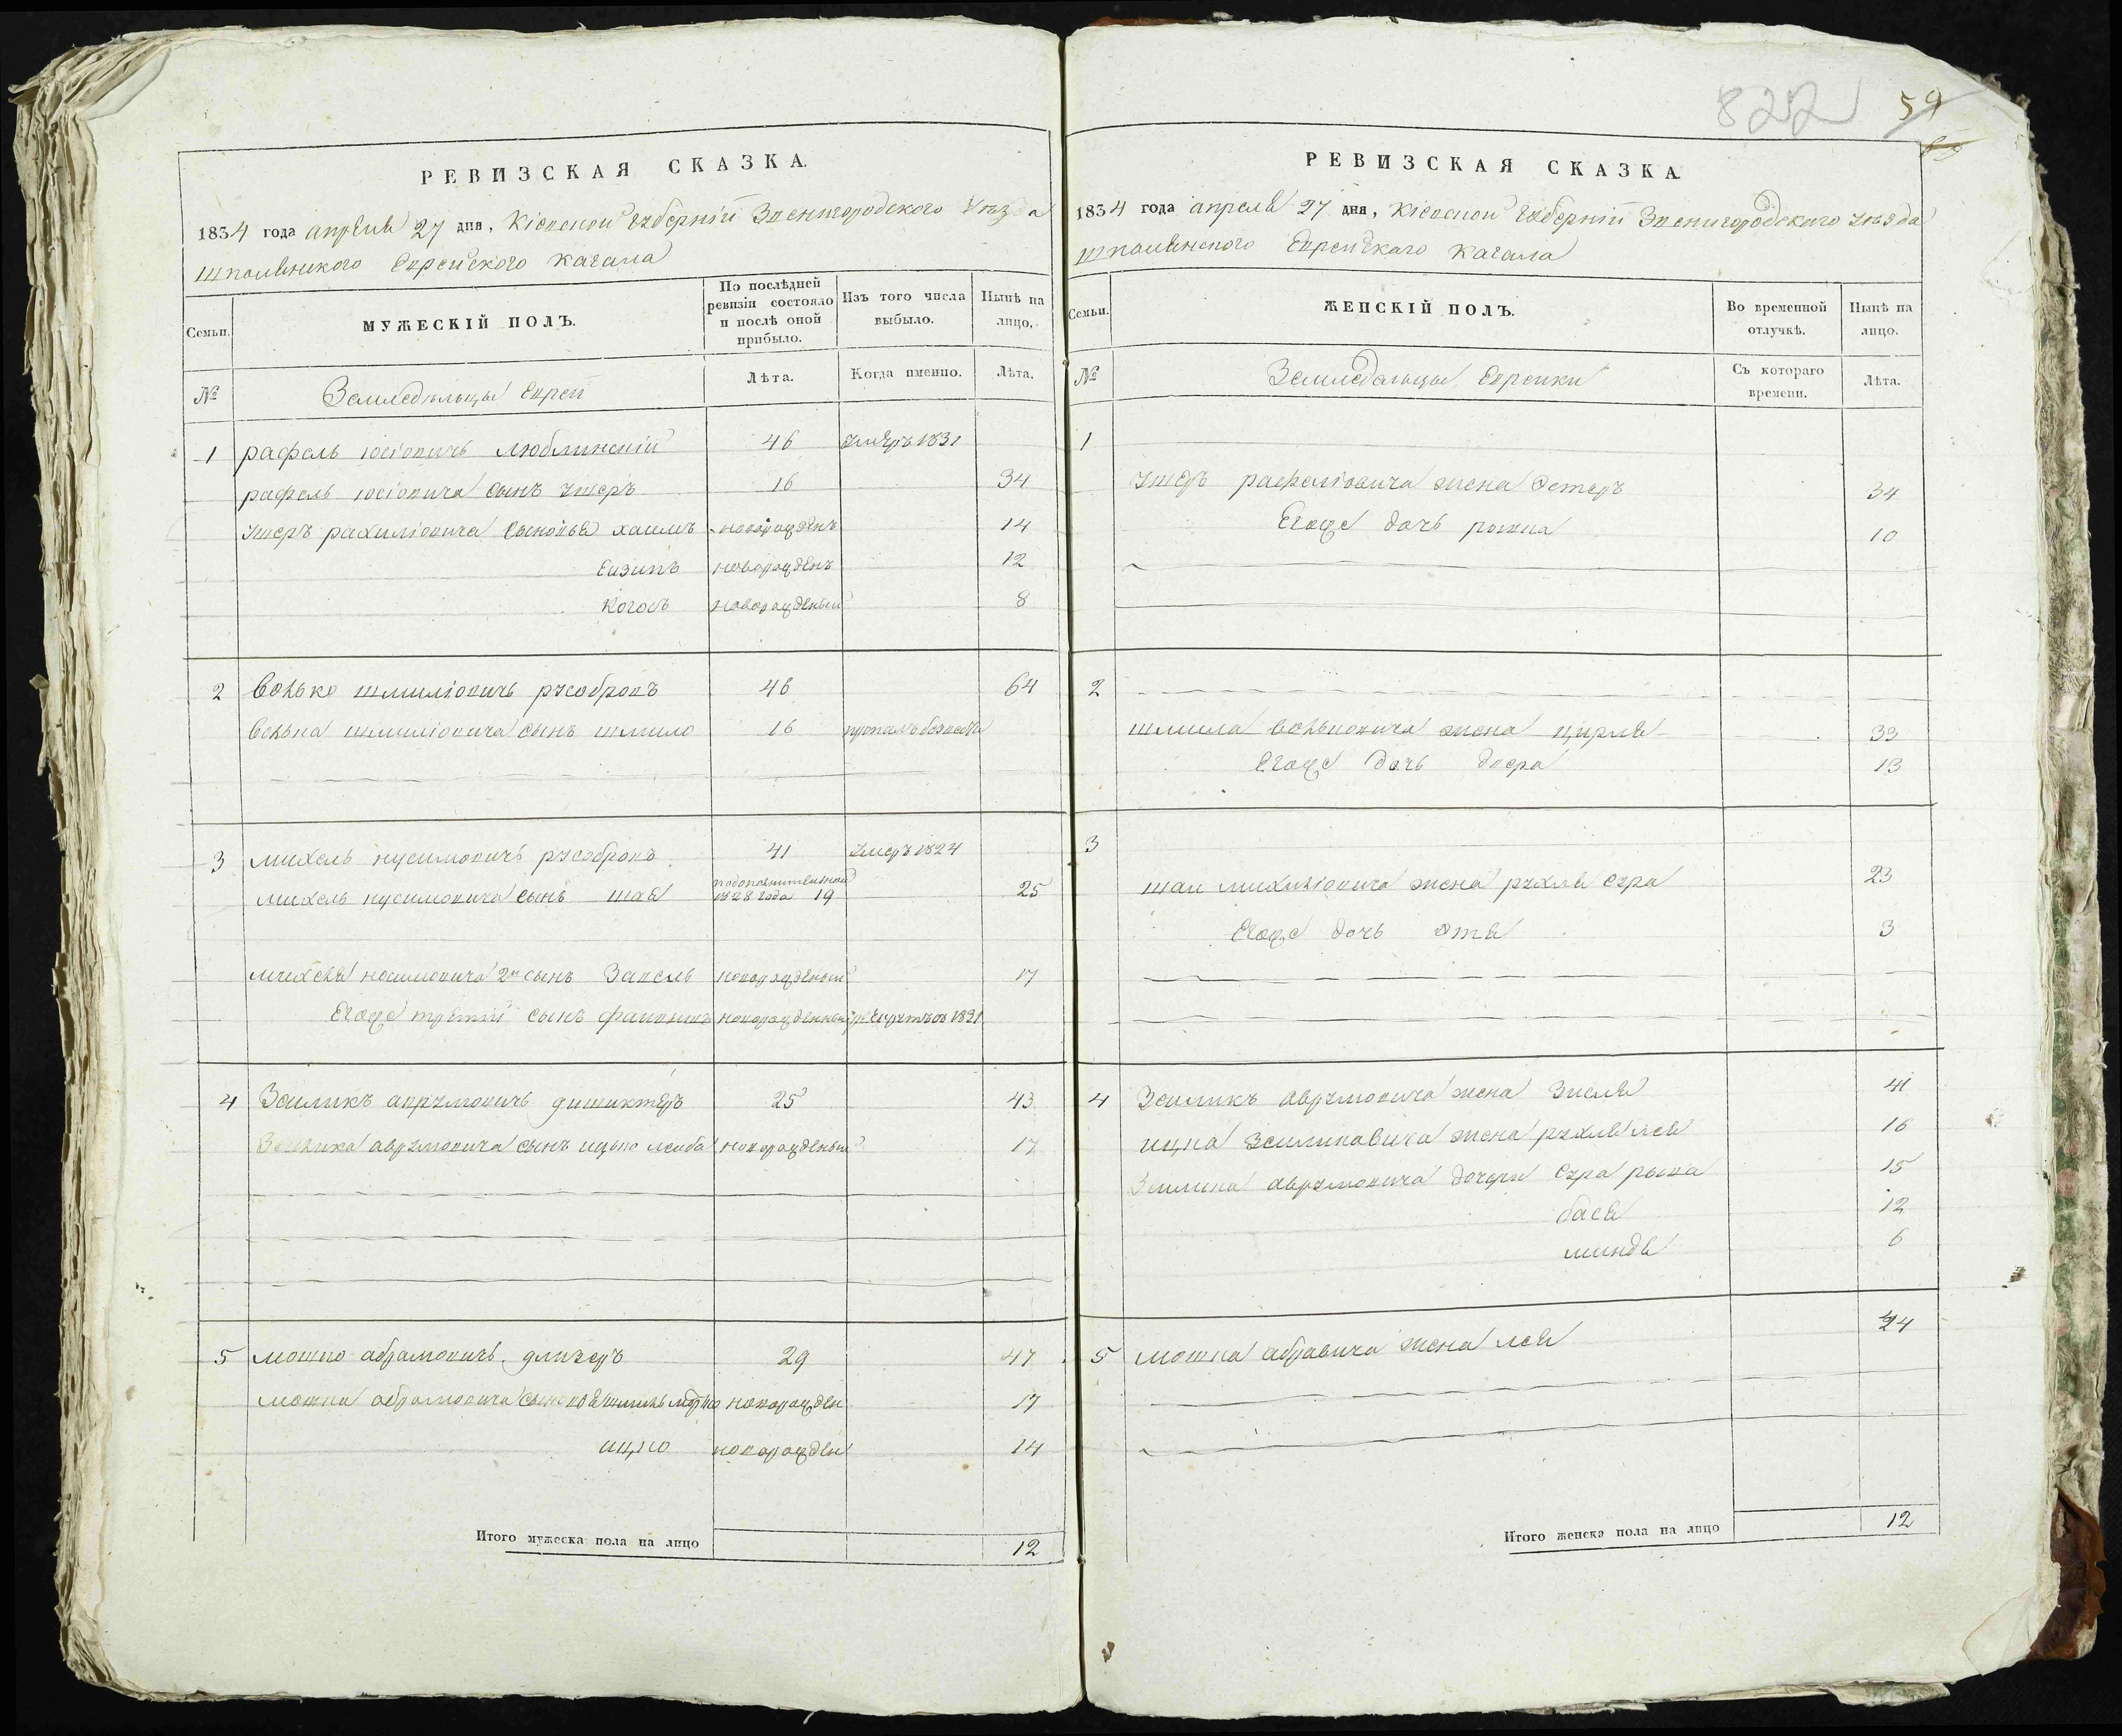 822 59
РЕВИЗСКАЯ СКАЗКА.
1834 года апреля 27 дня, Кіевской Губерніи Звенигородского Уѣзда
Шполянского Еврейского Кагала
Семьи.
МУЖЕСКІЙ ПОЛЪ.
По послѣдней ревизіи состояло и послѣ оной прибыло.
Изъ того числа выбыло.
Нынѣ на лицо.
№
Земледѣльцы Евреи
Лѣта.
Когда именно.
Лѣта.
1 рафель іосіовичъ Люблинскій 46 умеръ 1831
рафель іосіовича сынъ ушеръ 16 34
ушеръ рахиліовича сыновья хаимъ новорожденъ 14
новорожденъ 12
новорожденый 8
2 Волько шмиліовичъ 46 64
Волька шмиліовича сынъ шмило 16
3 михель нусимовичъ 41 умеръ 1824
михель нусимовича сынъ шая 1828 года 19 25
сынъ новорожденый 17
Егоже третий сынъ новорожденный 1831
4 Зейликъ аврумовичъ 25 43
Зейлика аврумовича сынъ ицько лейба новорожденый 17
5 мошко абрамовичъ 29 47
мошка абрамовича новорожден 17
ицко новорожден 14
Итого мужеска пола на лицо 12
РЕВИЗСКАЯ СКАЗКА.
1834 года апреля 27 дня, Кіевской Губерніи Звенигородского уѣзда
шполянского Еврейскаго Кагала
Семьи.
ЖЕНСКІЙ ПОЛЪ.
Во временной отлучкѣ.
Нынѣ на лицо.
№
Земледельцы Еврейки
Съ котораго времени.
Лѣта.
1
Ушеръ рафаліовича жена Эстеръ 34
Егоже дочь рывка 10
2
шмила Вольковича жена цирля 33
Егоже дочь двера 13
3
шаи михиліовича жена рухля сура 23
Егоже дочь этя 3
4 Зейликъ аврумовича жена Зисля 41
ицка Зейликовича жена рухля лея 16
Зейлика аврумовича дочери Сура рывка 15
бася 12
миндя 6
5 мошка абравича жена лея 24
Итого женска пола на лицо 12